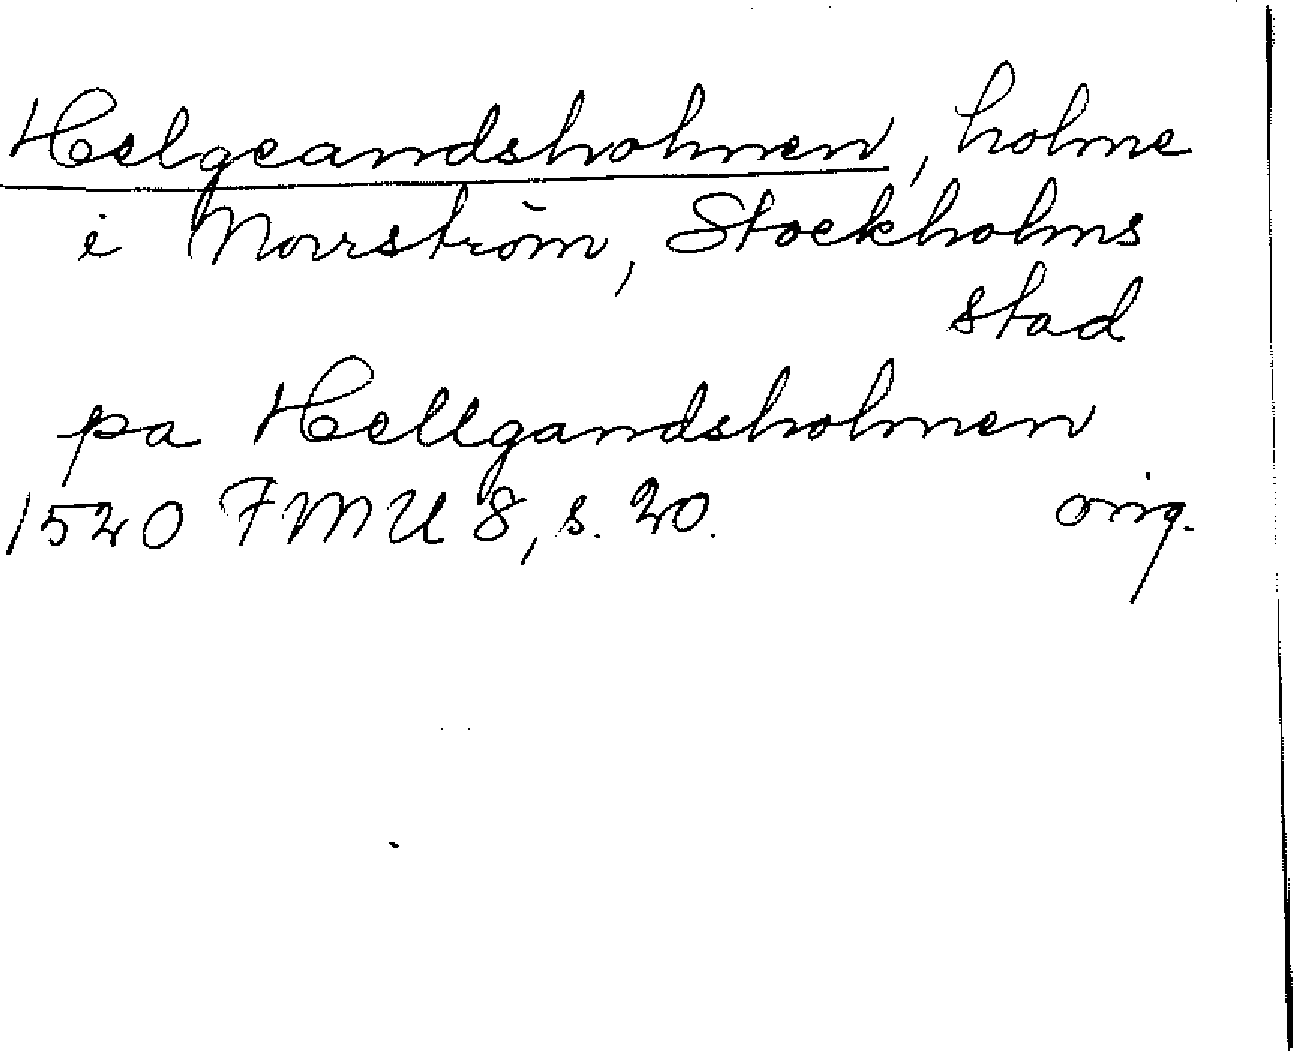 Helgeandsholmen, holme
i Norrström, Stockholms
stad
pa Hellgandsholmen
1520 FMU 8, s. 20. orig.